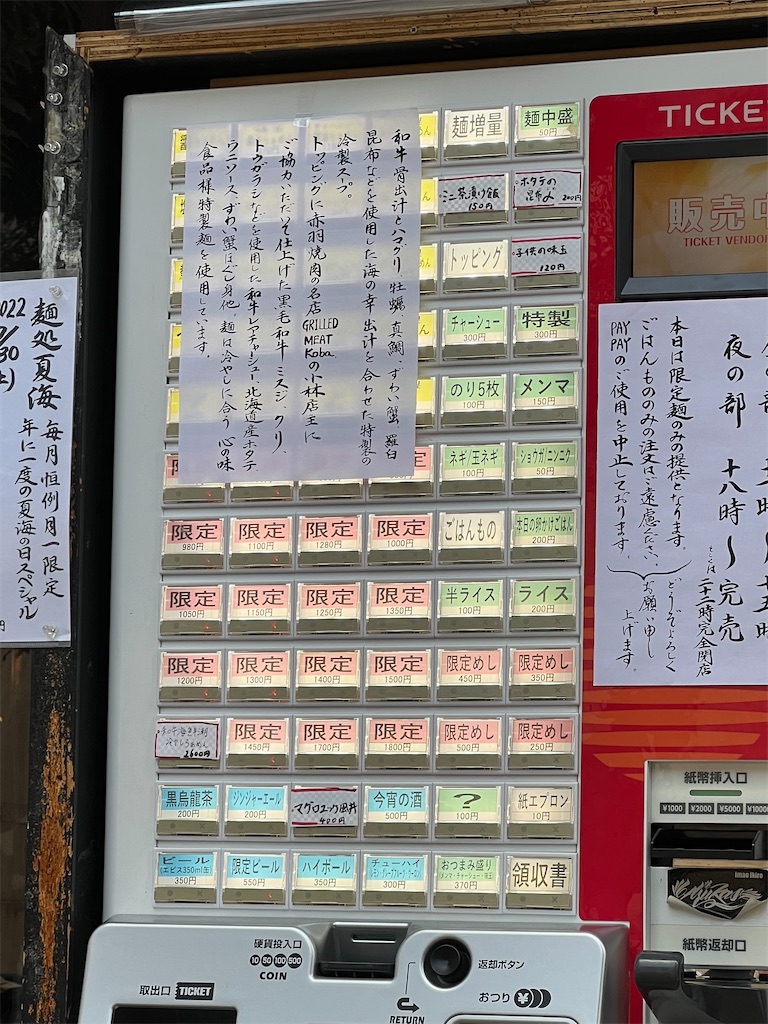 和牛骨出汁とハマグリ、牡蠣、真鯛、ずわい蟹、羅臼
昆布などを使用した海の幸出汁を合わせた特製の
冷製スープ。
トッピングに赤羽焼肉の名店GRILLED MEAT Kobaの小林店主に
ご協力いただいて仕上げた黒毛和牛ミスジ、クリ、
トウガラシなどを使用した和牛レアチャーシュー、北海道産ホタテ、
ウニソース、ずわい蟹ほぐし身他。麺は冷やしに合う心の味
食品様特製麺を使用しています。
麺処夏海
毎月恒例月一限定
年に一度の夏海の日スペシャル
2022
麺増量
麺中盛 50円
ミニ茶漬け飯 150円
ホタテの昆布〆 200円
トッピング
子供の味玉 120円
チャーシュー 300円
特製 300円
のり5枚 100円
メンマ 150円
ネギ/玉ネギ 100円
ショウガ/ニンニク 50円
限定 980円
限定 1100円
限定 1280円
限定 1000円
ごはんもの
本日の卵かけごはん 200円
限定 1050円
限定 1150円
限定 1250円
限定 1350円
半ライス 100円
ライス 200円
限定 1200円
限定 1300円
限定 1400円
限定 1500円
限定めし 450円
限定めし 350円
冷やしらぁめん 2600円
限定 1450円
限定 1700円
限定 1800円
限定めし 500円
限定めし 250円
黒烏龍茶 200円
ジンジャーエール 200円
マグロユッケ皿丼 400円
今宵の酒 500円
? 100円
紙エプロン 10円
ビール (エビス350ml缶) 350円
限定ビール 550円
ハイボール 350円
チューハイ 300円
おつまみ盛り メンマ・チャーシュー・味玉 370円
領収書
TICKE
販売中
TICKET VENDOR
夜の部 十八時〜完売
二十二時完全閉店
本日は限定麺のみの提供となります。
ごはんもののみの注文はご遠慮ください。
PAYPAYのご使用を中止しております。
どうぞよろしく
お願い申し
上げます。
紙幣挿入口
¥1000 ¥2000 ¥5000 ¥1000
imao ikiro
紙幣返却口
硬貨投入口
10 50 100 500
COIN
返却ボタン
取出口 TICKET
RETURN
おつり